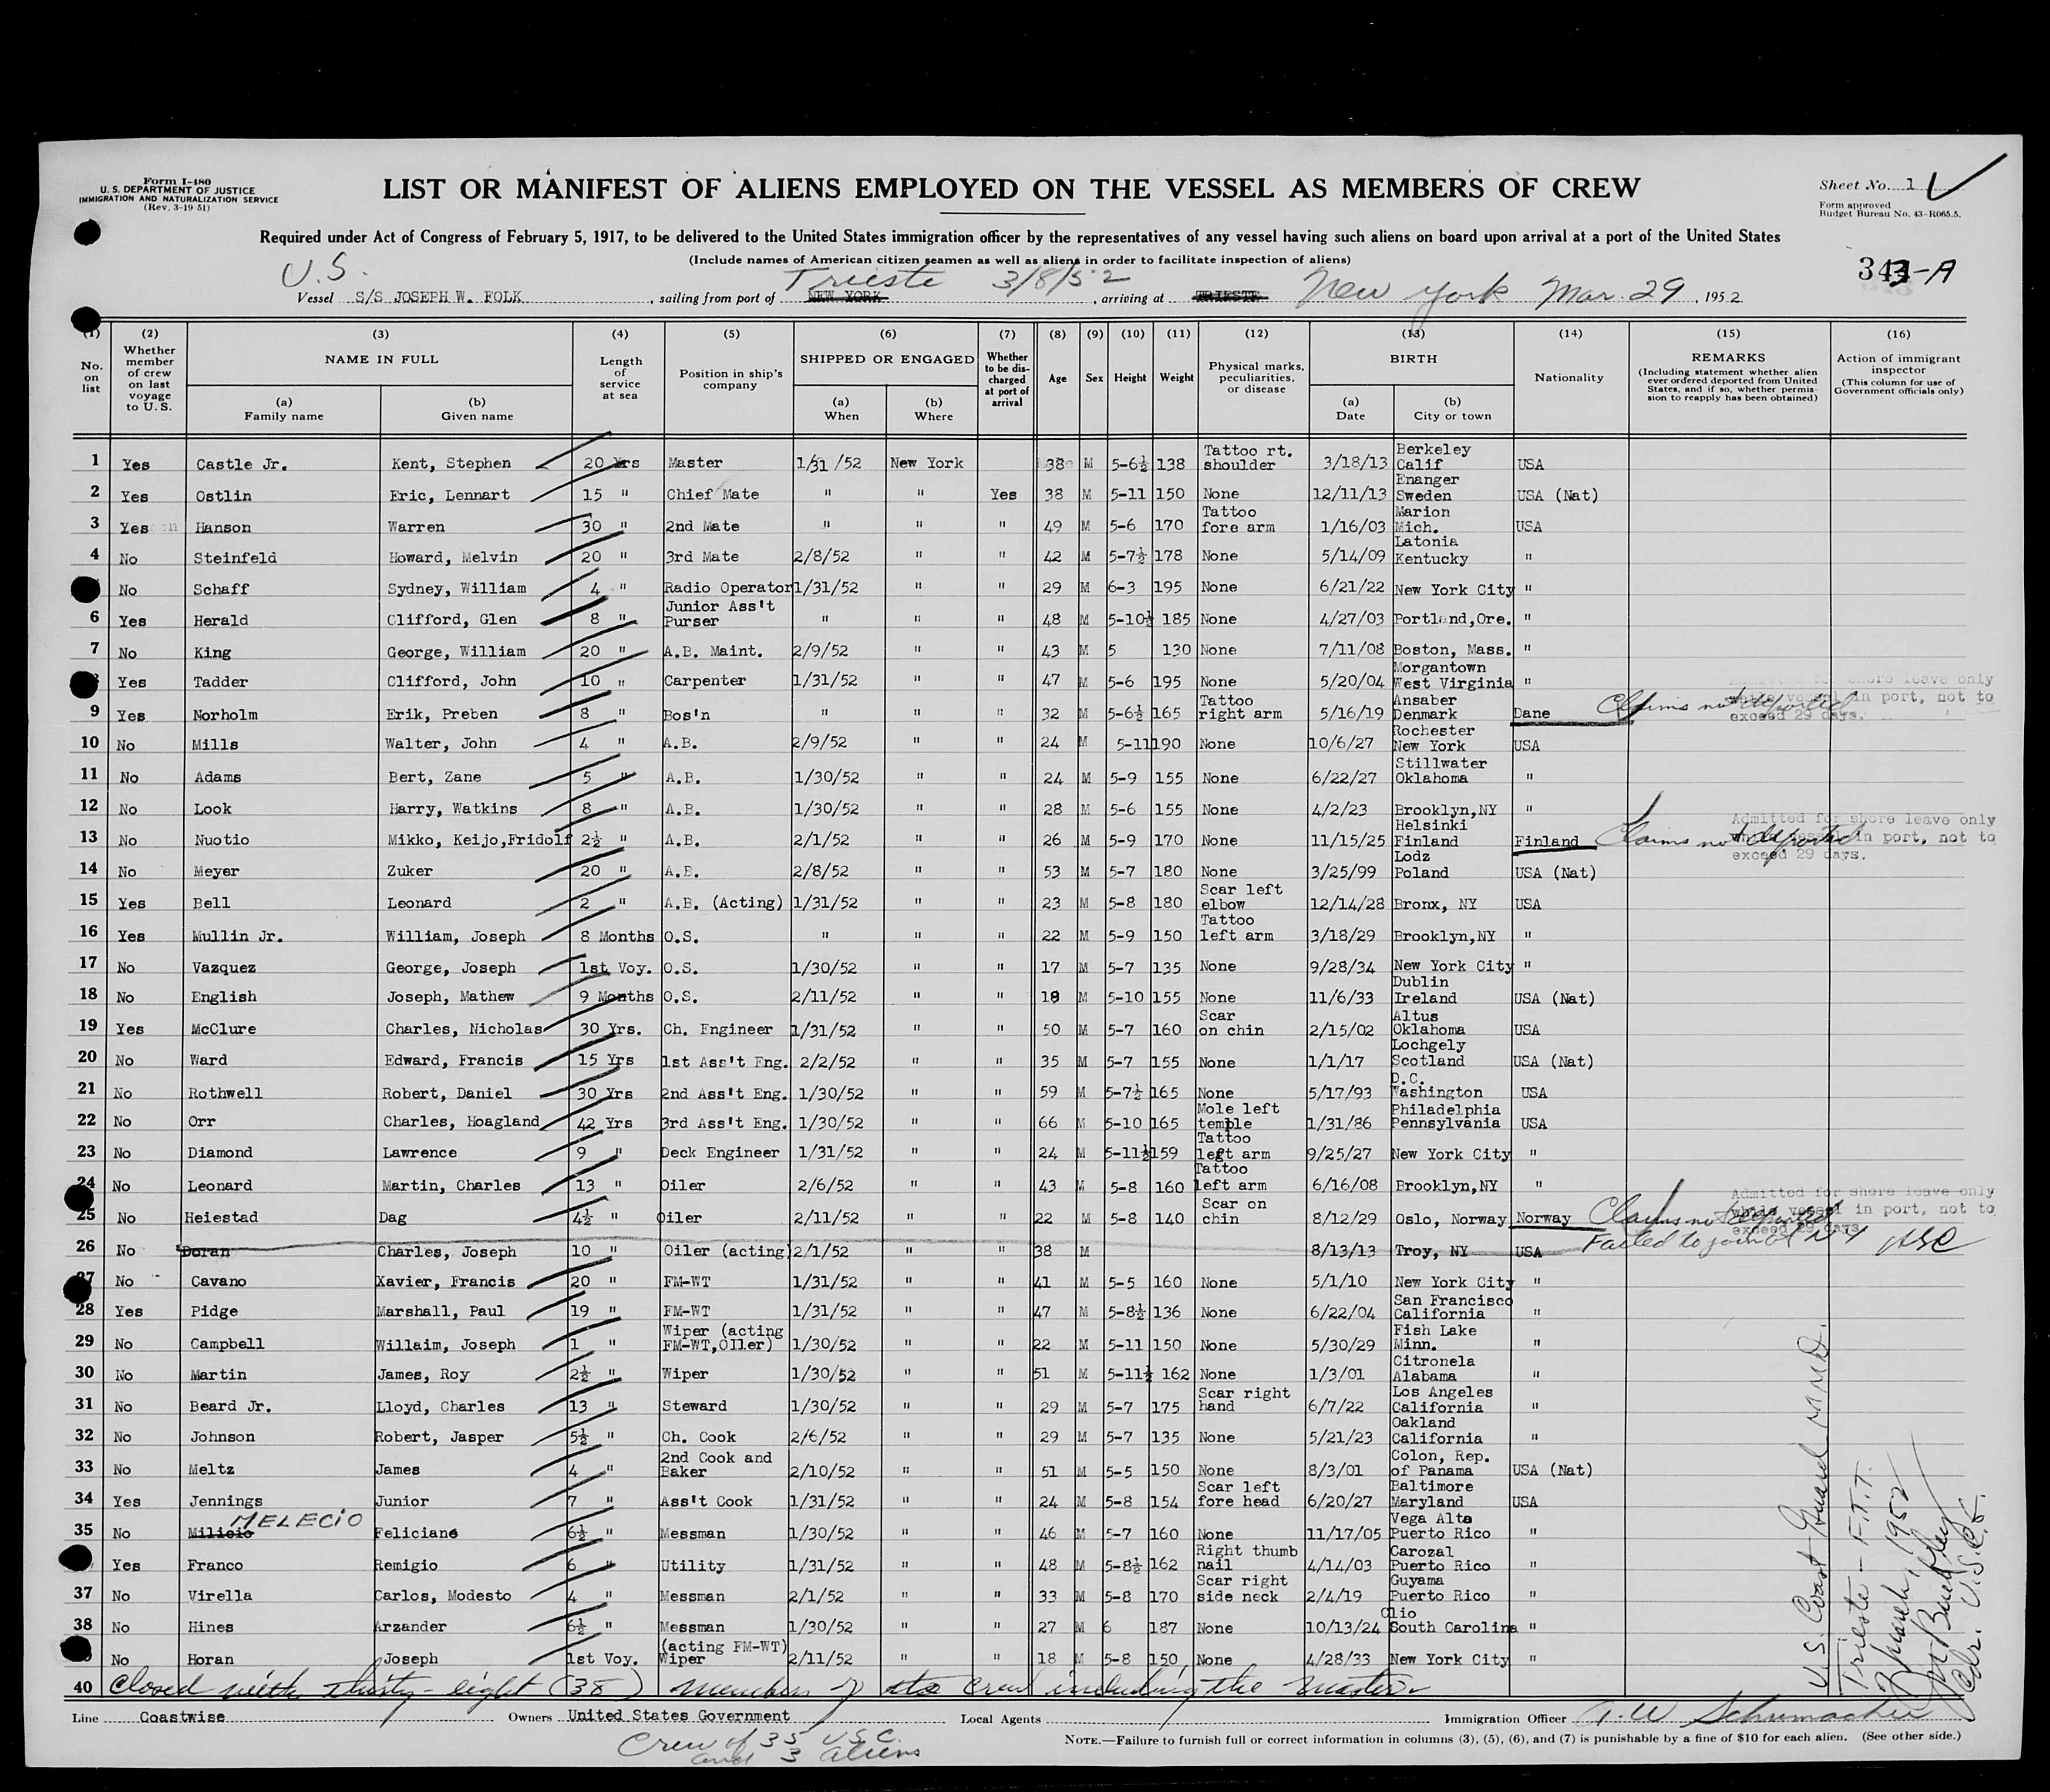 Form I-480
U. S. DEPARTMENT OF JUSTICE
IMMIGRATION AND NATURALIZATION SERVICE
(Rev. 3-19-51)
LIST OR MANIFEST OF ALIENS EMPLOYED ON THE VESSEL AS MEMBERS OF CREW
Sheet No. 1
Form approved
Budget Bureau No. 43-R065.5.
Required under Act of Congress of February 5, 1917, to be delivered to the United States immigration officer by the representatives of any vessel having such aliens on board upon arrival at a port of the United States
(Include names of American citizen seamen as well as aliens in order to facilitate inspection of aliens)
343-A
U.S. Trieste 3/8/52
Vessel S/S JOSEPH W. FOLK, sailing from port of NEW YORK, arriving at TRIESTE New York Mar. 29, 1952
(1) No. on list
(2) Whether member of crew on last voyage to U. S.
(3) NAME IN FULL (a) Family name (b) Given name
(4) Length of service at sea
(5) Position in ship's company
(6) SHIPPED OR ENGAGED (a) When (b) Where
(7) Whether to be discharged at port of arrival
(8) Age
(9) Sex
(10) Height
(11) Weight
(12) Physical marks, peculiarities, or disease
(13) BIRTH (a) Date (b) City or town
(14) Nationality
(15) REMARKS (Including statement whether alien ever ordered deported from United States, and if so, whether permission to reapply has been obtained)
(16) Action of immigrant inspector (This column for use of Government officials only)
1 Yes Castle Jr. Kent, Stephen 20 Yrs Master 1/31/52 New York 38 M 5-6½ 138 Tattoo rt. shoulder 3/18/13 Berkeley Calif USA
2 Yes Ostlin Eric, Lennart 15 " Chief Mate " " Yes 38 M 5-11 150 None 12/11/13 Enanger Sweden USA (Nat)
3 Yes Hanson Warren 30 " 2nd Mate " " " 49 M 5-6 170 Tattoo fore arm 1/16/03 Marion Mich. USA
4 No Steinfeld Howard, Melvin 20 " 3rd Mate 2/8/52 " " 42 M 5-7½ 178 None 5/14/09 Latonia Kentucky "
No Schaff Sydney, William 4 " Radio Operator 1/31/52 " " 29 M 6-3 195 None 6/21/22 New York City "
6 Yes Herald Clifford, Glen 8 " Junior Ass't Purser " " " 48 M 5-10½ 185 None 4/27/03 Portland,Ore. "
7 No King George, William 20 " A.B. Maint. 2/9/52 " " 43 M 5 130 None 7/11/08 Boston, Mass. "
Yes Tadder Clifford, John 10 " Carpenter 1/31/52 " " 47 M 5-6 195 None 5/20/04 Morgantown West Virginia "
9 Yes Norholm Erik, Preben 8 " Bos'n " " " 32 M 5-6½ 165 Tattoo right arm 5/16/19 Ansaber Denmark Dane Claims not deported Admitted for shore leave only while vessel in port, not to exceed 29 days.
10 No Mills Walter, John 4 " A.B. 2/9/52 " " 24 M 5-11 190 None 10/6/27 Rochester New York USA
11 No Adams Bert, Zane 5 " A.B. 1/30/52 " " 24 M 5-9 155 None 6/22/27 Stillwater Oklahoma "
12 No Look Harry, Watkins 8 " A.B. 1/30/52 " " 28 M 5-6 155 None 4/2/23 Brooklyn,NY "
13 No Nuotio Mikko, Keijo,Fridolf 2½ " A.B. 2/1/52 " " 26 M 5-9 170 None 11/15/25 Helsinki Finland Finland Claims not deported Admitted for shore leave only while vessel in port, not to exceed 29 days.
14 No Meyer Zuker 20 " A.B. 2/8/52 " " 53 M 5-7 180 None 3/25/99 Lodz Poland USA (Nat)
15 Yes Bell Leonard 2 " A.B. (Acting) 1/31/52 " " 23 M 5-8 180 Scar left elbow 12/14/28 Bronx, NY USA
16 Yes Mullin Jr. William, Joseph 8 Months O.S. " " " 22 M 5-9 150 Tattoo left arm 3/18/29 Brooklyn,NY "
17 No Vazquez George, Joseph 1st Voy. O.S. 1/30/52 " " 17 M 5-7 135 None 9/28/34 New York City "
18 No English Joseph, Mathew 9 Months O.S. 2/11/52 " " 18 M 5-10 155 None 11/6/33 Dublin Ireland USA (Nat)
19 Yes McClure Charles, Nicholas 30 Yrs. Ch. Engineer 1/31/52 " " 50 M 5-7 160 Scar on chin 2/15/02 Altus Oklahoma USA
20 No Ward Edward, Francis 15 Yrs 1st Ass't Eng. 2/2/52 " " 35 M 5-7 155 None 1/1/17 Lochgely Scotland USA (Nat)
21 No Rothwell Robert, Daniel 30 Yrs 2nd Ass't Eng. 1/30/52 " " 59 M 5-7½ 165 None 5/17/93 D.C. Washington USA
22 No Orr Charles, Hoagland 42 Yrs 3rd Ass't Eng. 1/30/52 " " 66 M 5-10 165 Mole left temple 1/31/86 Philadelphia Pennsylvania USA
23 No Diamond Lawrence 9 " Deck Engineer 1/31/52 " " 24 M 5-11½ 159 Tattoo left arm 9/25/27 New York City "
24 No Leonard Martin, Charles 13 " Oiler 2/6/52 " " 43 M 5-8 160 Tattoo left arm 6/16/08 Brooklyn,NY "
25 No Heiestad Dag 4½ " Oiler 2/11/52 " " 22 M 5-8 140 Scar on chin 8/12/29 Oslo, Norway Norway Claims not deported Admitted for shore leave only while vessel in port, not to exceed 29 days
26 No Doran Charles, Joseph 10 " Oiler (acting) 2/1/52 " " 38 M 8/13/13 Troy, NY USA Failed to join at NY USC
27 No Cavano Xavier, Francis 20 " FM-WT 1/31/52 " " 41 M 5-5 160 None 5/1/10 New York City "
28 Yes Pidge Marshall, Paul 19 " FM-WT 1/31/52 " " 47 M 5-8½ 136 None 6/22/04 San Francisco California "
29 No Campbell Willaim, Joseph 1 " Wiper (acting FM-WT,OIler) 1/30/52 " " 22 M 5-11 150 None 5/30/29 Fish Lake Minn. "
30 No Martin James, Roy 2½ " Wiper 1/30/52 " " 51 M 5-11½ 162 None 1/3/01 Citronela Alabama "
31 No Beard Jr. Lloyd, Charles 13 " Steward 1/30/52 " " 29 M 5-7 175 Scar right hand 6/7/22 Los Angeles California "
32 No Johnson Robert, Jasper 5½ " Ch. Cook 2/6/52 " " 29 M 5-7 135 None 5/21/23 Oakland California "
33 No Meltz James 4 " 2nd Cook and Baker 2/10/52 " " 51 M 5-5 150 None 8/3/01 Colon, Rep. of Panama USA (Nat)
34 Yes Jennings Junior 7 " Ass't Cook 1/31/52 " " 24 M 5-8 154 Scar left fore head 6/20/27 Baltimore Maryland USA
35 No Milicio MELECIO Feliciano 6½ " Messman 1/30/52 " " 46 M 5-7 160 None 11/17/05 Vega Alta Puerto Rico "
Yes Franco Remigio 6 " Utility 1/31/52 " " 48 M 5-8½ 162 Right thumb nail 4/14/03 Carozal Puerto Rico "
37 No Virella Carlos, Modesto 4 " Messman 2/1/52 " " 33 M 5-8 170 Scar right side neck 2/4/19 Guyama Puerto Rico "
38 No Hines Arzander 6½ " Messman 1/30/52 " " 27 M 6 187 None 10/13/24 Clio South Carolina "
No Horan Joseph 1st Voy. (acting FM-WT) Wiper 2/11/52 " " 18 M 5-8 150 None 4/28/33 New York City "
40 Closed with thirty-eight (38) members of the crew including the master
U.S. Coast Guard M.M.D.
Trieste - F.T.T.
7 March, 1952
Cdr. U.S.C.G.
Line Coastwise Owners United States Government Local Agents Immigration Officer A. W. Schumacher
Crew of 35 U.S.C.
and 3 aliens
NOTE.—Failure to furnish full or correct information in columns (3), (5), (6), and (7) is punishable by a fine of $10 for each alien. (See other side.)